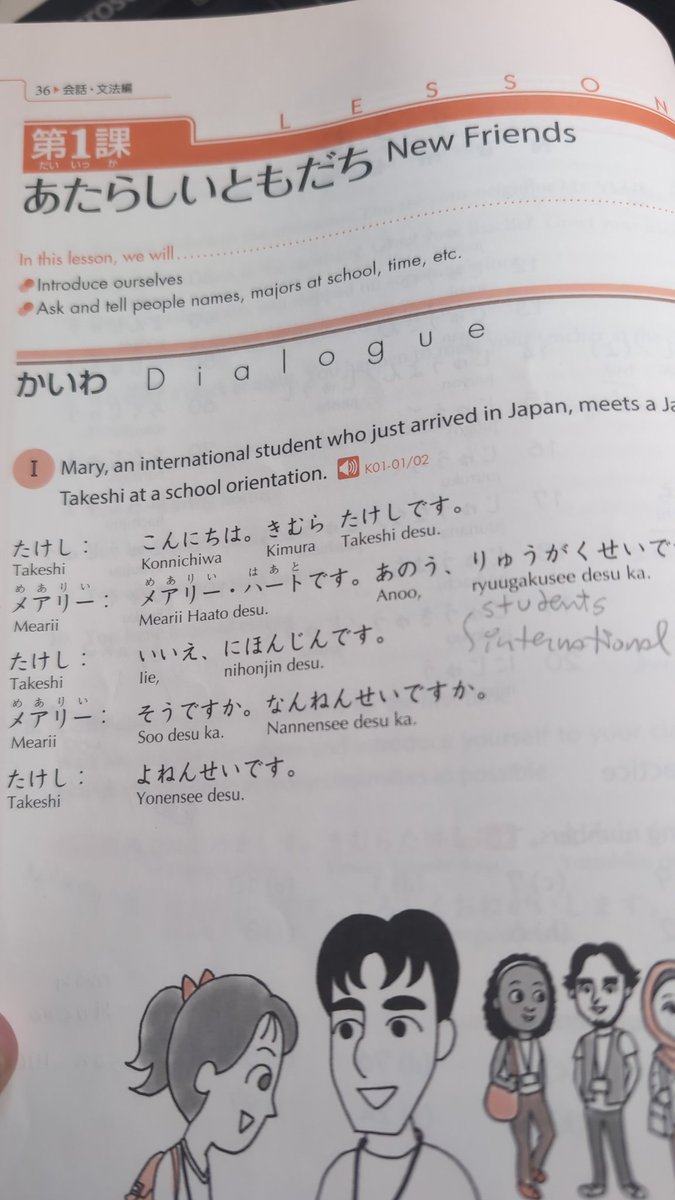 36▶会話・文法編
LESSON
第1課
だい いっ か
あたらしいともだち New Friends
In this lesson, we will
Introduce ourselves
Ask and tell people names, majors at school, time, etc.
かいわ Dialogue
I Mary, an international student who just arrived in Japan, meets a Ja
Takeshi at a school orientation. K01-01/02
たけし： こんにちは。きむら たけしです。
Takeshi Konnichiwa Kimura Takeshi desu.
めありい めありい はあと
メアリー： メアリー・ハートです。あのう、りゅうがくせいで
Mearii Mearii Haato desu. Anoo, ryuugakusee desu ka.
students
international
たけし： いいえ、にほんじんです。
Takeshi Iie, nihonjin desu.
めありい
メアリー： そうですか。なんねんせいですか。
Mearii Soo desu ka. Nannensee desu ka.
たけし： よねんせいです。
Takeshi Yonensee desu.